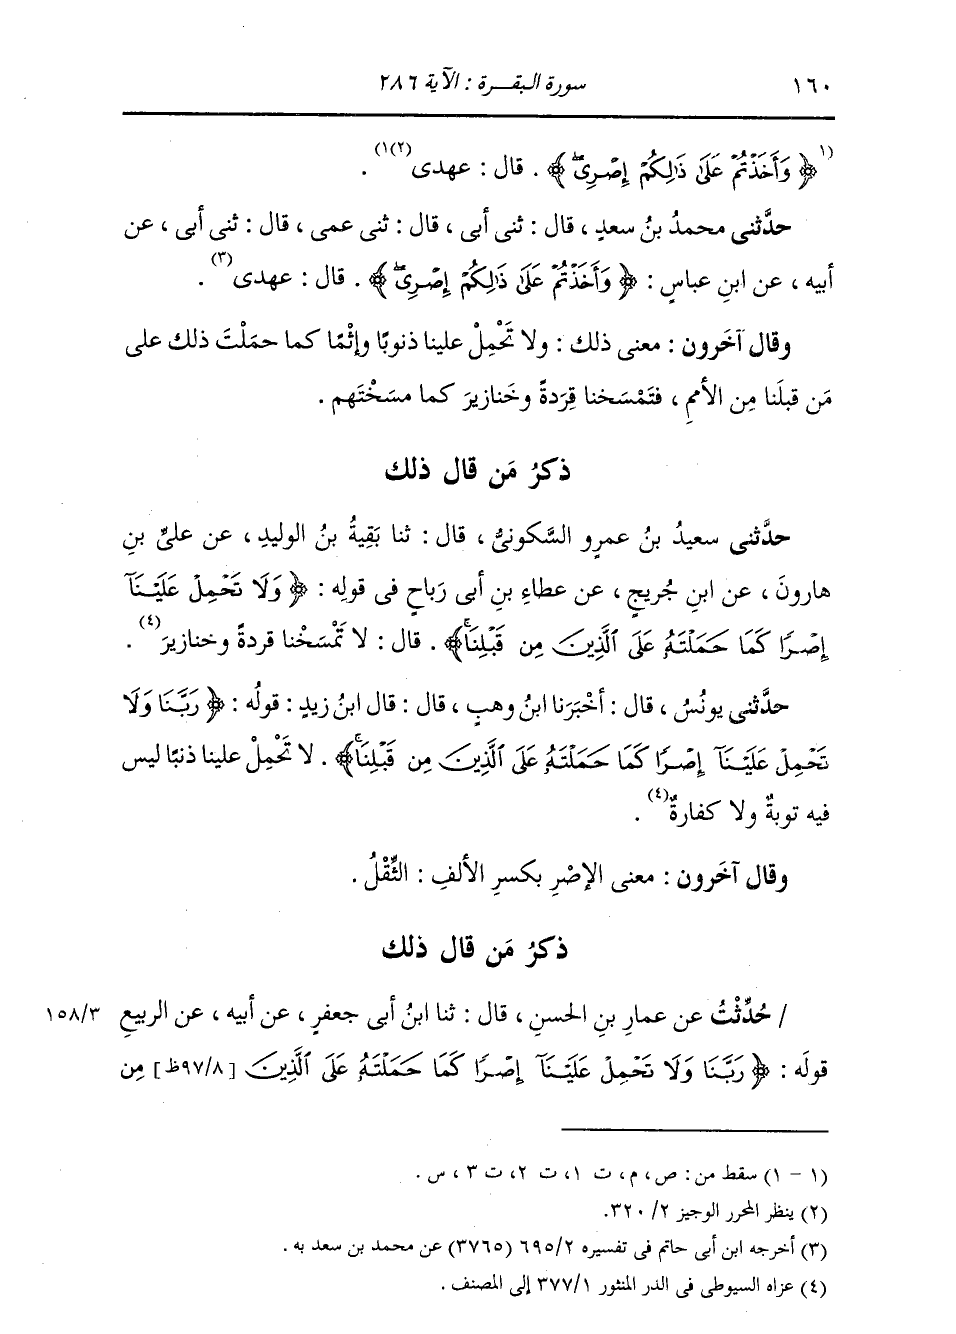 ١٦٠ سورة البقــرة : الآية ٢٨٦
(١﴿ وَأَخَذْتُمْ عَلَىٰ ذَٰلِكُمْ إِصْرِىۖ ﴾ . قال : عهدى(٢)١) .
حدَّثنى محمدُ بنُ سعدٍ ، قال : ثنى أبى ، قال : ثنى عمى ، قال : ثنى أبى ، عن
أبيه ، عن ابنِ عباسٍ : ﴿ وَأَخَذْتُمْ عَلَىٰ ذَٰلِكُمْ إِصْرِىۖ ﴾ . قال : عهدى(٣) .
وقال آخَرون : معنى ذلك : ولا تَحْمِلْ علينا ذنوبًا وإثْمًا كما حمَلْتَ ذلك على
مَن قبلَنا مِن الأممِ ، فتَمْسَخنا قِردَةً وخَنازيرَ كما مسَخْتَهم .
ذكرُ مَن قال ذلك
حدَّثنى سعيدُ بنُ عمرٍو السَّكونىُّ ، قال : ثنا بَقِيةُ بنُ الوليدِ ، عن علىِّ بنِ
هارونَ ، عن ابنِ جُريجٍ ، عن عطاءِ بنِ أبى رَباحٍ فى قولِه : ﴿ وَلَا تَحْمِلْ عَلَيْنَآ
إِصْرًا كَمَا حَمَلْتَهُۥ عَلَى ٱلَّذِينَ مِن قَبْلِنَاۚ ﴾ . قال : لا تَمْسَخْنا قردةً وخنازيرَ(٤) .
حدَّثنى يونُسُ ، قال : أخْبَرَنا ابنُ وهبٍ ، قال : قال ابنُ زيدٍ : قولُه : ﴿ رَبَّنَا وَلَا
تَحْمِلْ عَلَيْنَآ إِصْرًا كَمَا حَمَلْتَهُۥ عَلَى ٱلَّذِينَ مِن قَبْلِنَاۚ ﴾ . لا تَحْمِلْ علينا ذنبًا ليس
فيه توبةٌ ولا كفارةٌ(٤) .
وقال آخَرون : معنى الإصْرِ بكسرِ الألفِ : الثِّقْلُ .
ذكرُ مَن قال ذلك
/ حُدِّثْتُ عن عمارِ بنِ الحسنِ ، قال : ثنا ابنُ أبى جعفرٍ ، عن أبيه ، عن الربيعِ ١٥٨/٣
قولَه : ﴿ رَبَّنَا وَلَا تَحْمِلْ عَلَيْنَآ إِصْرًا كَمَا حَمَلْتَهُۥ عَلَى ٱلَّذِينَ [٩٧/٨ظ] مِن
(١ - ١) سقط من : ص ، م ، ت ١، ت ٢، ت ٣ ، س .
(٢) ينظر المحرر الوجيز ٢/ ٣٢٠.
(٣) أخرجه ابن أبى حاتم فى تفسيره ٦٩٥/٢ (٣٧٦٥) عن محمد بن سعد به .
(٤) عزاه السيوطى فى الدر المنثور ٣٧٧/١ إلى المصنف .